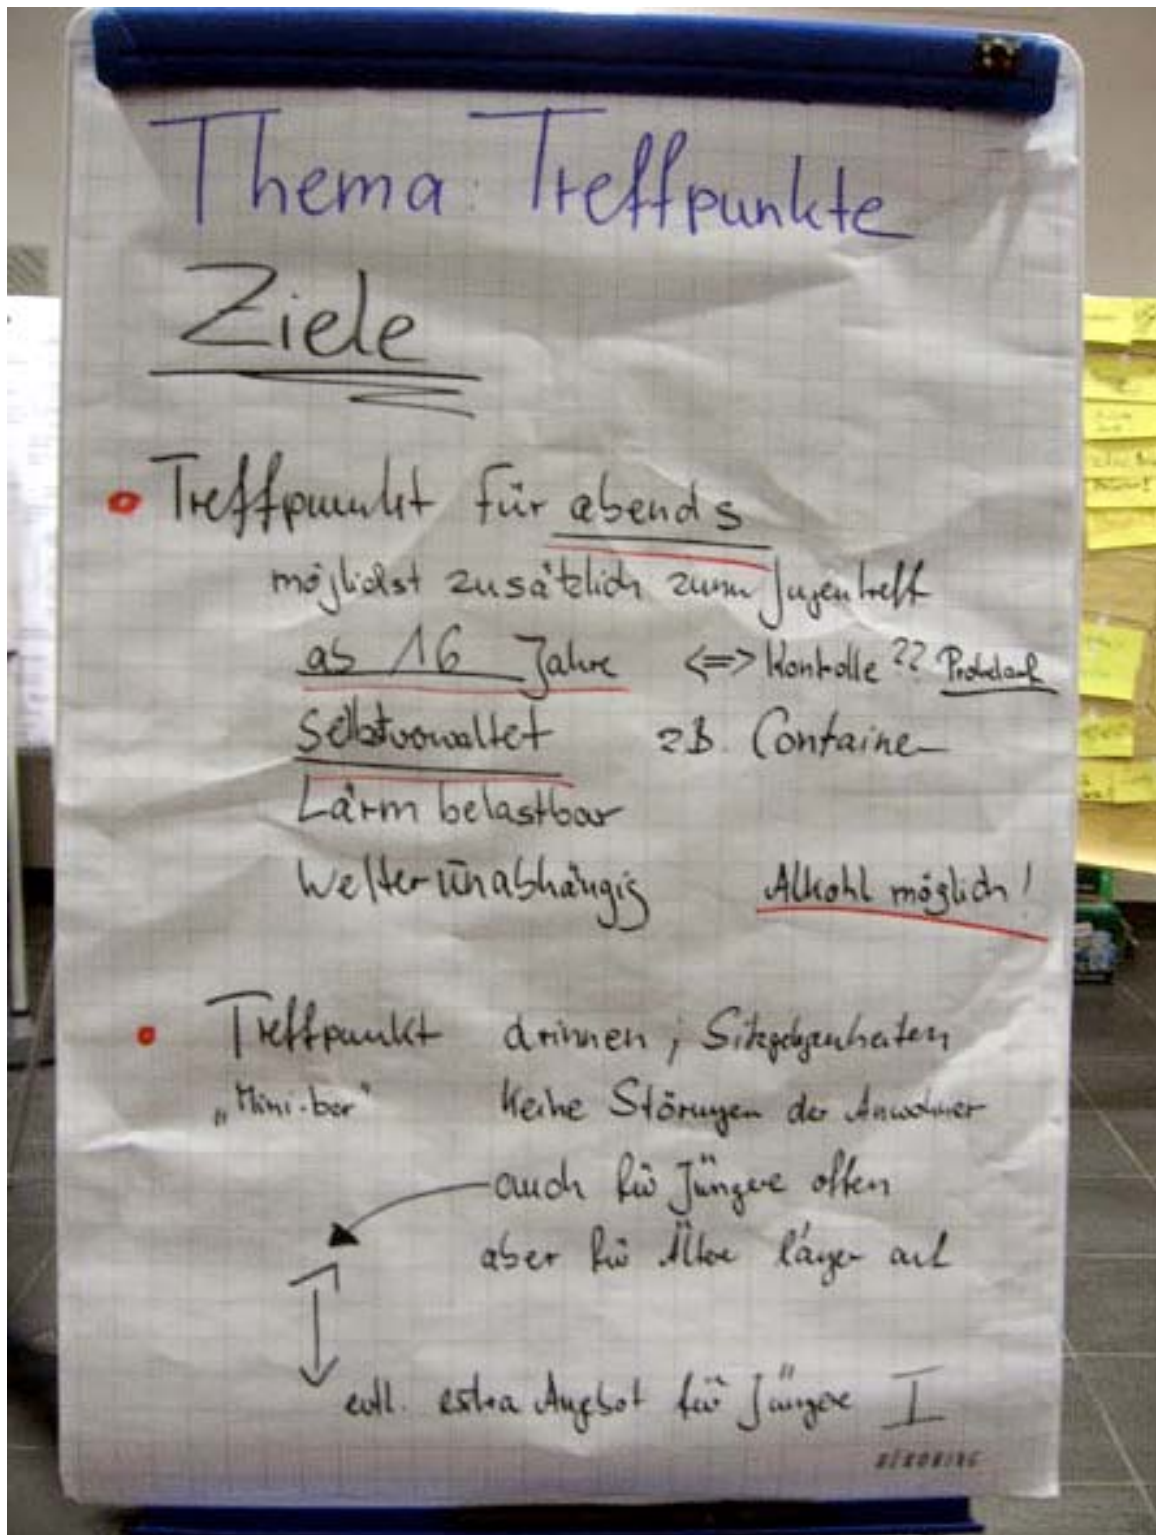 Thema: Treffpunkte
Ziele
Treffpunkt für abends
möglichst zusätzlich zum Jugentreff
ab 16 Jahre <=> Kontrolle ?? Probelauf
Selbstverwaltet z.B. Container
Lärm belastbar
Wetterunabhängig Alkohl möglich!
Treffpunkt drinnen, Sitzgelegenheiten
„Mini-bar" Keine Störungen der Anwohner
auch für Jüngere offen
aber für Ältere länger auf
evtl. extra Angebot für Jüngere I